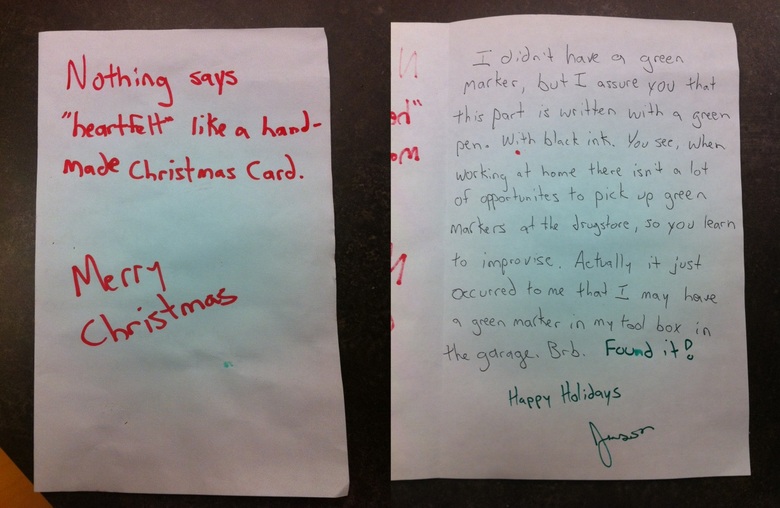 Nothing says
"heartfelt" like a hand-
made Christmas Card.
Merry
Christmas
I didn't have a green
marker, but I assure you that
this part is written with a green
pen. With black ink. You see, when
working at home there isn't a lot
of opportunites to pick up green
markers at the drugstore, so you learn
to improvise. Actually it just
occurred to me that I may have
a green marker in my tool box in
the garage. Brb. Found it!
Happy Holidays